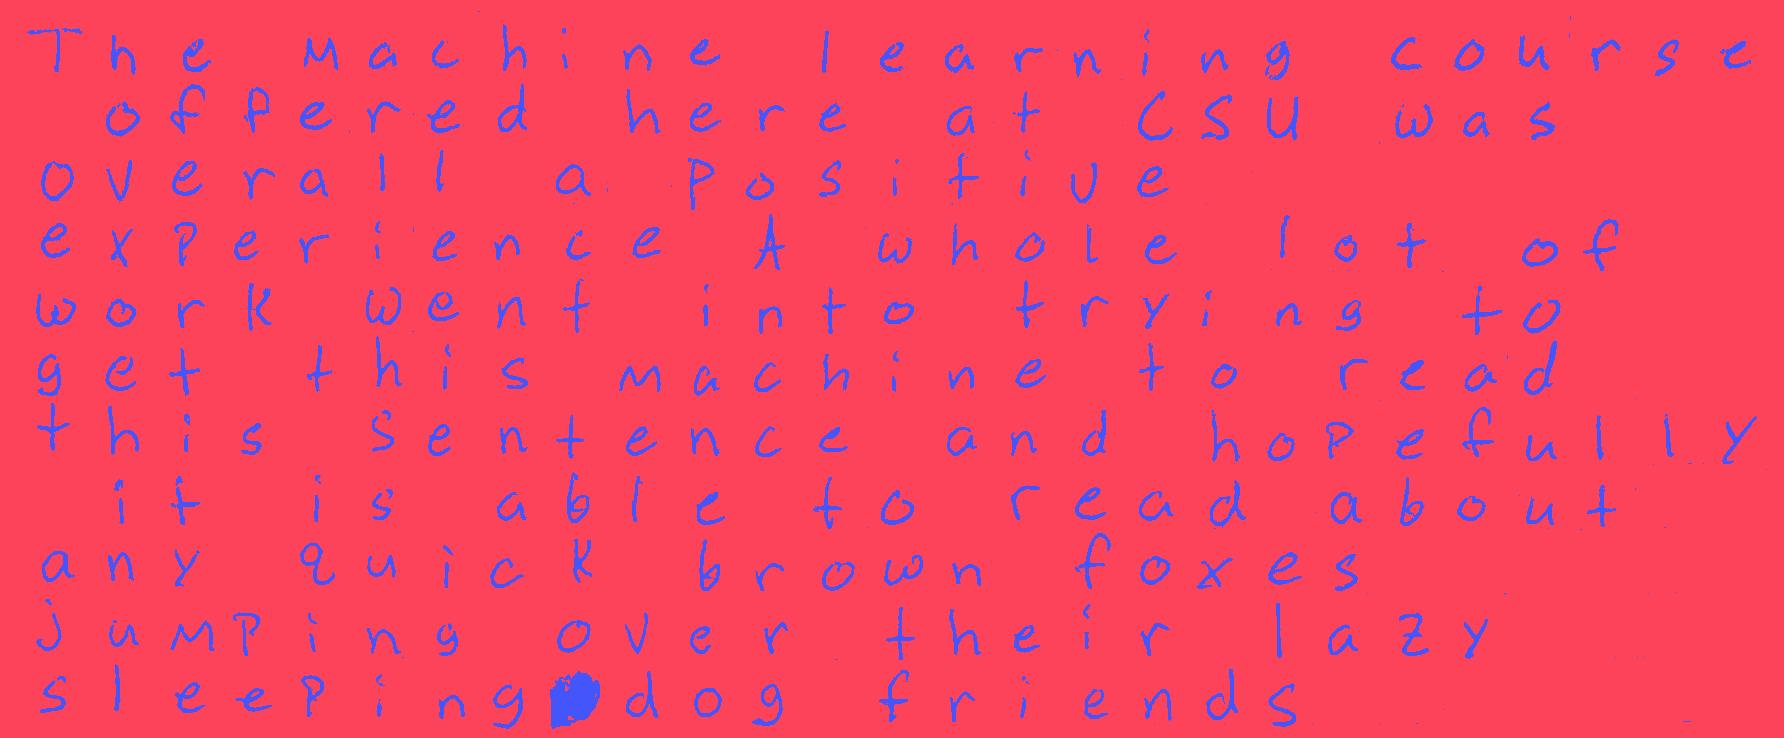 The Machine learning course
offered here at CSU was
overall a positive
experience A whole lot of
work went into trying to
get this machine to read
this sentence and hopefully
it is able to read about
any quick brown foxes
jumping over their lazy
sleeping dog friends